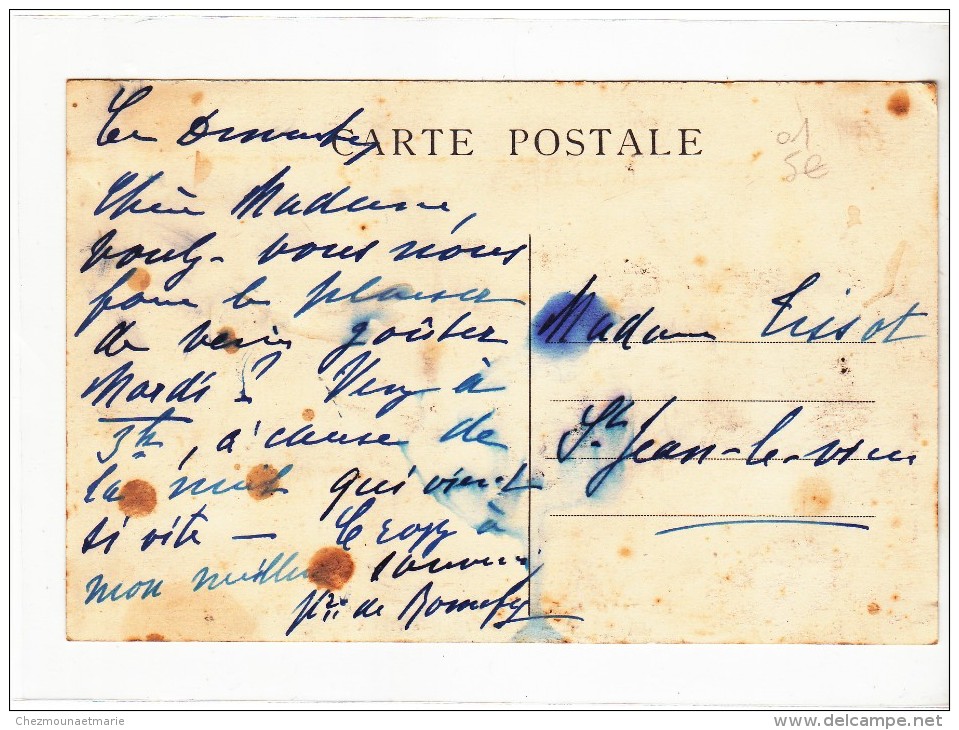 Ce Dimanche
CARTE POSTALE
01
5€
Chère Madame,
voulez-vous nous
faire le plaisir
de venir goûter
Mardi? Venez à
3h, à cause de
la nuit qui vient
si vite — Croyez à
mon meilleur souvenir
de
Madame Tissot
St Jean-le-vieux
Chezmounaetmarie
www.delcampe.net